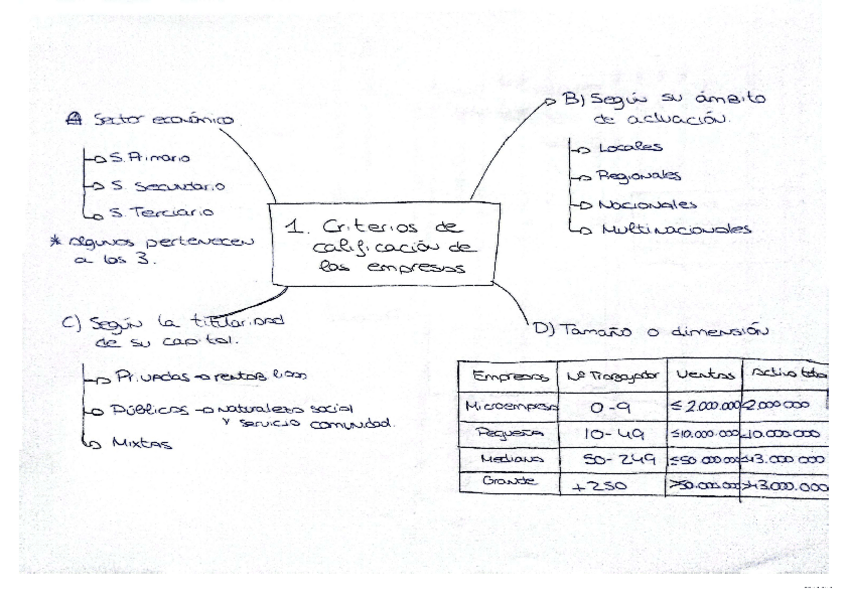 A Sector económico
S. Primario
S. Secundario
S. Terciario
* Algunos pertenecen
a los 3.
B) Según su ámbito
de actuación.
Locales
Regionales
Nacionales
Multinacionales
1. Criterios de
calificación de
las empresas
C) Según la titularidad
de su capital.
Privadas → rentabilidad
Públicas → naturaleza social
y servicio comunidad.
Mixtas
D) Tamaño o dimensión
Empresas Nº Trabajador Ventas Activo total
Microempresa 0-9 ≤ 2.000.000 2.000.000
Pequeña 10-49 ≤10.000.000 10.000.000
Mediana 50-249 ≤50.000.000 ≤43.000.000
Grande +250 >50.000.000 >43.000.000